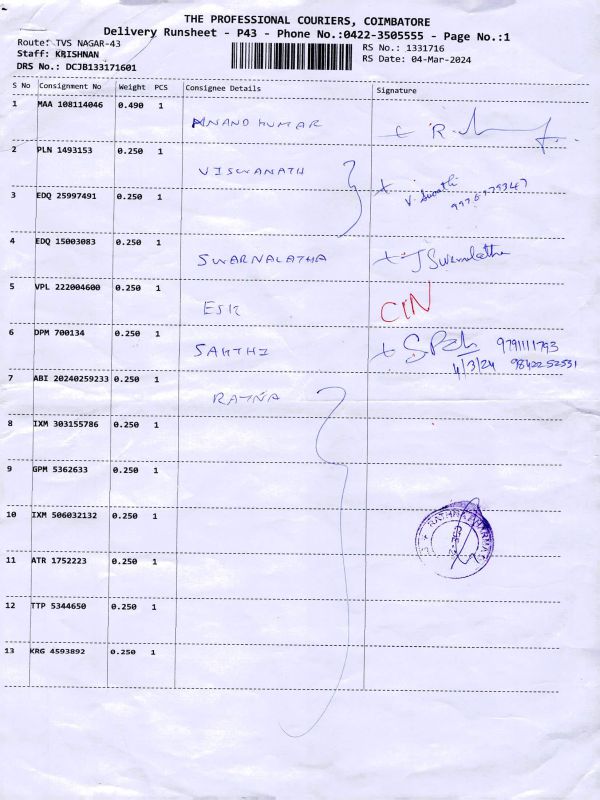 THE PROFESSIONAL COURIERS, COIMBATORE
Delivery Runsheet - P43 - Phone No.:0422-3505555 - Page No.:1
Route: TVS NAGAR-43
Staff: KRISHNAN
DRS No.: DCJB133171601
RS No.: 1331716
RS Date: 04-Mar-2024
S No Consignment No Weight PCS Consignee Details Signature
1 MAA 108114046 0.490 1 ANAND KUMAR
2 PLN 1493153 0.250 1 VISWANATH
3 EDQ 25997491 0.250 1
4 EDQ 15003083 0.250 1 SWARNALATHA J Swarnalatha
5 VPL 222004600 0.250 1 ESK
6 DPM 700134 0.250 1 SAKTHI 9791111793
4/3/24 9842252531
7 ABI 20240259233 0.250 1 RATNA
8 IXM 303155786 0.250 1
9 GPM 5362633 0.250 1
10 IXM 506032132 0.250 1
11 ATR 1752223 0.250 1
12 TTP 5344650 0.250 1
13 KRG 4593892 0.250 1